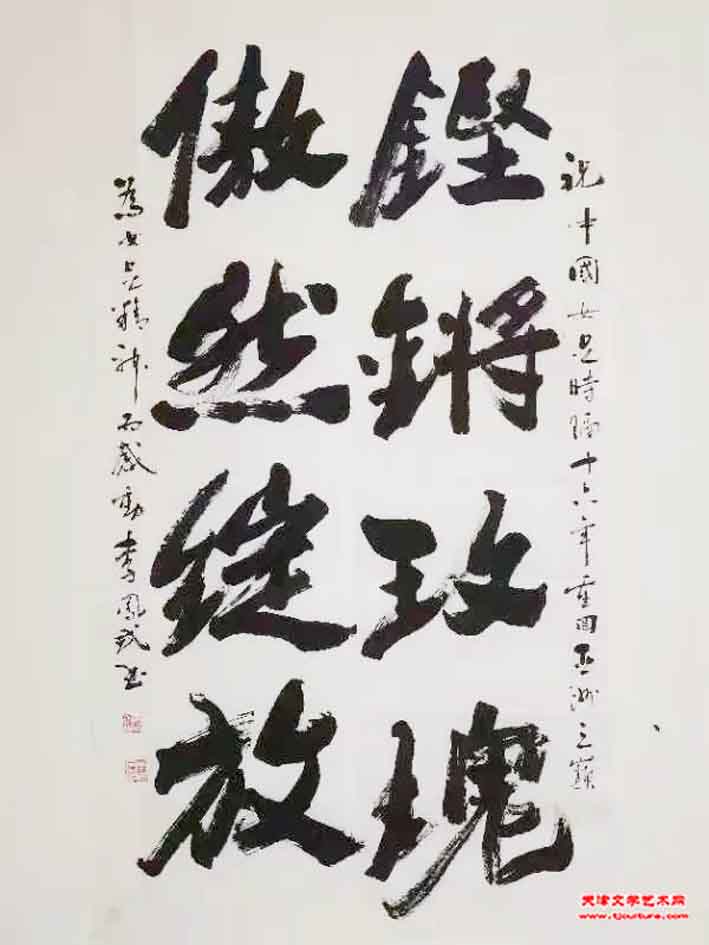 祝中國女足時隔十六年重回亞洲之巔
鏗鏘玫瑰
傲然綻放
為女足精神而感動李鳳书
天津文学艺术网
www.tjculture.com